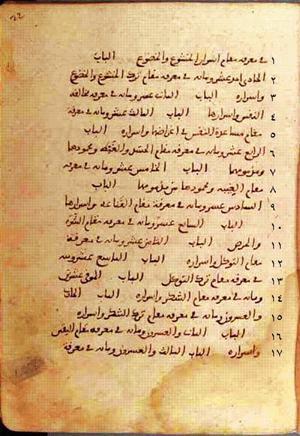 في معرفة مقام اسرار الخشوع والخضوع الباب ١
الحادي احد عشر ومايه في معرفة مقام ترك الخشوع والخضوع ٢
واسراره الباب الثاني عشر ومايه في معرفة مخالفة ٣
النفس واسرارها الباب الثالث عشر ومايه في معرفة ٤
مقام مساعدة النفس في اغراضها واسراره الباب ٥
الرابع عشر ومايه في معرفة مقام الحسد والغبطة ومحمودها ٦
ومذمومها الباب الخامس عشر ومايه في معرفة ٧
مقام الغيبة ومحمودها من مذمومها الباب ٨
السادس عشر ومايه في معرفة مقام القناعه واسرارها ٩
الباب السابع عشر ومايه في معرفة مقام الشره ١٠
والحرص الباب الثامن عشر ومايه في معرفة ١١
مقام التوكل واسراره الباب التاسع عشر ومايه ١٢
في معرفة مقام ترك التوكل الباب الموفي عشرين ١٣
ومايه في معرفة مقام الشكر واسراره الباب الحادي ١٤
والعشرون ومايه في معرفة مقام ترك الشكر واسراره ١٥
الباب الثاني والعشرون ومايه في معرفة مقام اليقين ١٦
واسراره الباب الثالث والعشرون ومايه في معرفة ١٧